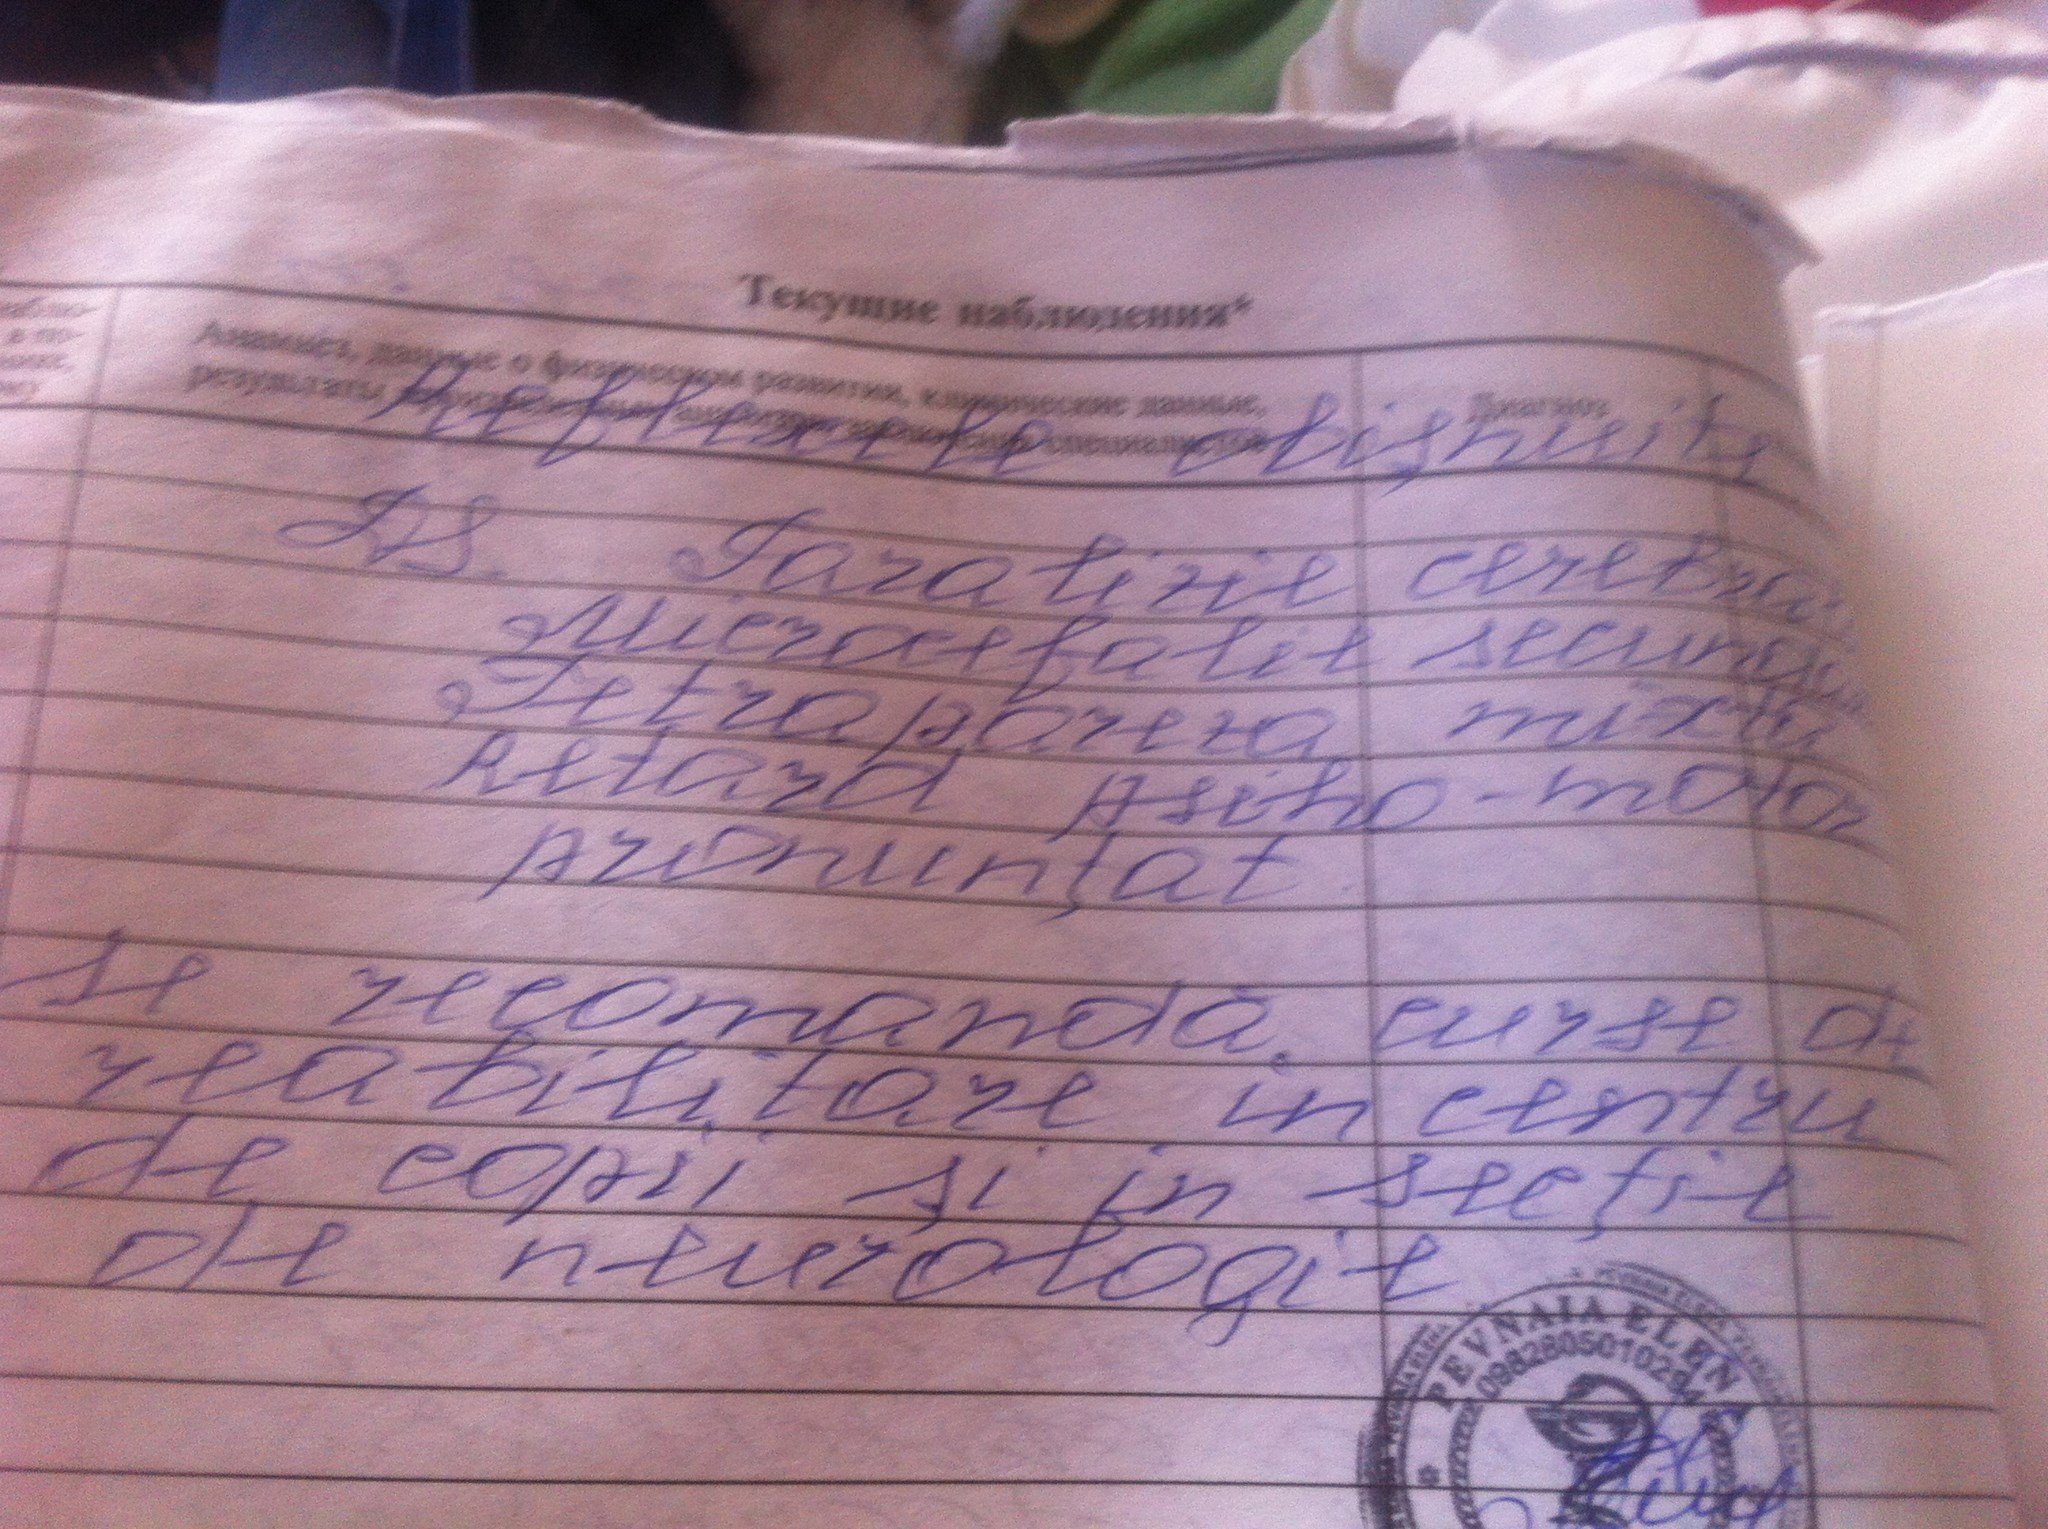 Текущие наблюдения*
Анамнез, данные о физическом развитии, клинические данные,
результаты специалистов
Диагноз
Reflexele obișnuite
DS. Paralizie cerebra
Microcefalie secunda
Tetrapareza mixta
Retard psiho-motor
pronunțat.
Se recomandă curse de
reabilitare in centru
de copii și in secție
de neurologie
PEVNAIA ELENA
0982805010294